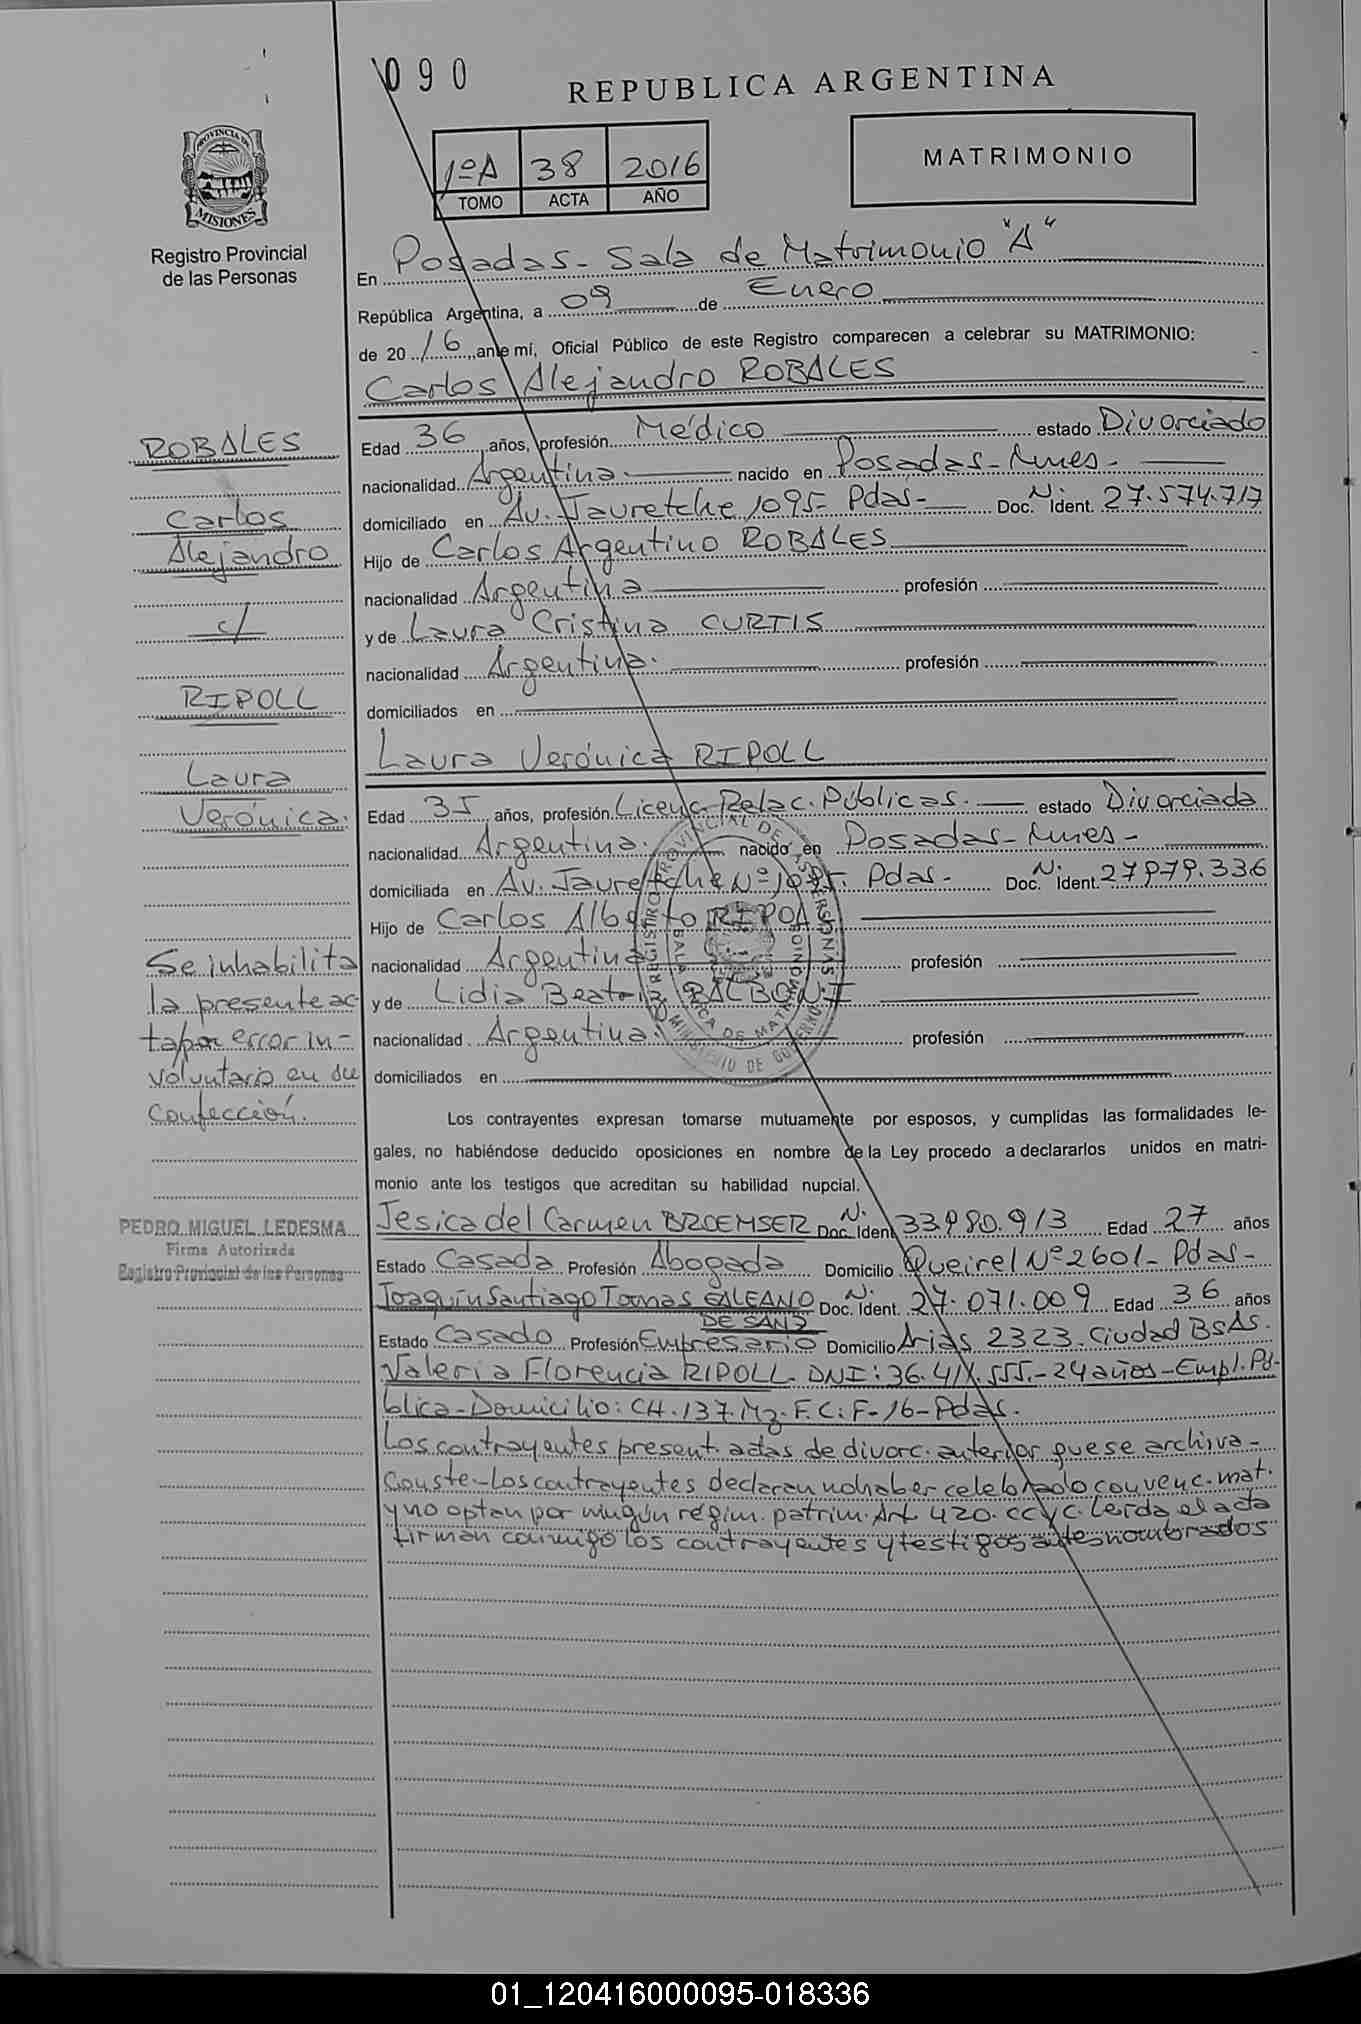 090
REPUBLICA ARGENTINA
PROVINCIA DE
MISIONES
Registro Provincial
de las Personas
1ºA 38 2016
TOMO ACTA AÑO
MATRIMONIO
En Posadas - Sala de Matrimonio "A"
República Argentina, a 09 de Enero
de 20 16 ,ante mí, Oficial Público de este Registro comparecen a celebrar su MATRIMONIO:
Carlos Alejandro ROBALES
Edad 36 años, profesión Médico estado Divorciado
nacionalidad Argentina. nacido en Posadas - Mnes -
domiciliado en Av. Jauretche 1095 - Pdas - Doc. N. Ident. 27.574.717
Hijo de Carlos Argentino ROBALES
nacionalidad Argentina profesión
y de Laura Cristina CURTIS
nacionalidad Argentina. profesión
domiciliados en
Laura Verónica RIPOLL
Edad 35 años, profesión Licenc. Relac. Públicas. estado Divorciada
nacionalidad Argentina. nacido en Posadas - Mnes -
domiciliada en Av. Jauretche Nº Pdas - Doc. N. Ident.
Hijo de Carlos Alberto
nacionalidad Argentina profesión
y de Lidia Beatriz BALBONI
nacionalidad Argentina. profesión
domiciliados en
Los contrayentes expresan tomarse mutuamente por esposos, y cumplidas las formalidades le-
gales, no habiéndose deducido oposiciones en nombre de la Ley procedo a declararlos unidos en matri-
monio ante los testigos que acreditan su habilidad nupcial.
Jesica del Carmen BROEMSER Doc. N. Ident. 33.980.913 Edad 27 años
Estado Casada Profesión Abogada Domicilio Queirel Nº 2601 - Pdas -
Joaquín Santiago Tomas GALEANO Doc. N. Ident. 27.071.009 Edad 36 años
DE SANZ
Estado Casado Profesión Empresario Domicilio Arias 2323. Ciudad BsAs.
Valeria Florencia RIPOLL. DNI: - 24 años - Empl. Pú-
blica - Domicilio: CH. 137. Mz. F. C: F-16 - Pdas.
Los contrayentes present. actas de divorc. anterior que se archiva -
Conste - Los contrayentes declaran no haber celebrado convenc. mat.
y no optan por ningún régim. patrim. Art. 420. CC y C. Leída el acta
firman conmigo los contrayentes y testigos antes nombrados
ROBALES
Carlos
Alejandro
c/
RIPOLL
Laura
Verónica.
Se inhabilita
la presente ac
ta por error in-
voluntario en su
confección.
PEDRO MIGUEL LEDESMA
Firma Autorizada
Registro Provincial de las Personas
01_120416000095-018336